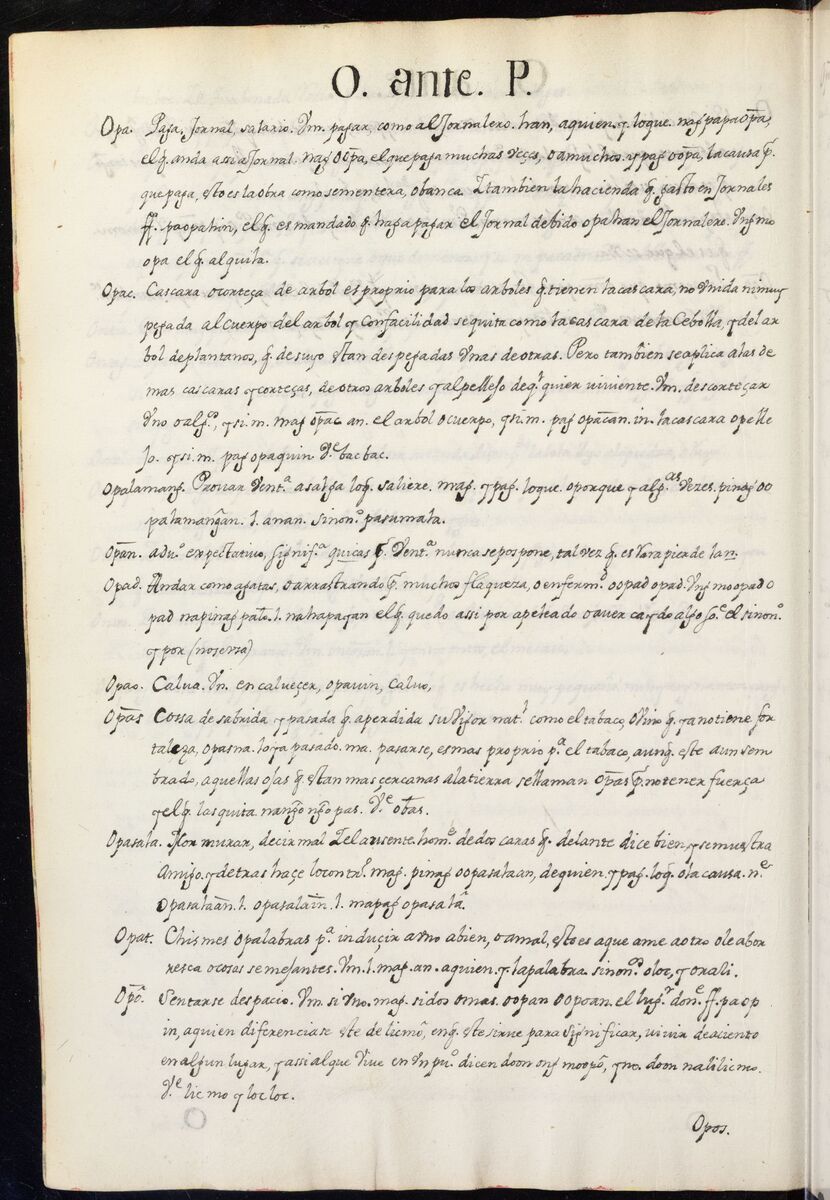 O. ante. P.
Opa. Paga, Jornal, salario. Vm. pagar, como al Jornalero. han, a quien, y loque. nag papaopa,
el q̃. anda assi a Jornal. nag oopa, el que paga muchas veçes, o a muchos. y pag oopa, la causa p̃.
que paga, esto es la obra como sementera, o banca. I tambien la hacienda q̃. gasto en Jornales
ff. paopahin, el q̃. es mandado q̃. haga pagar el Jornal debido opahan el Jornalero. Vng mo
opa el q̃. alquila.
Opac. Cascara o corteça de arbol es proprio para los arboles q̃. tienen la cascara, no Vnida ni muy
pegada al cuerpo del arbol y con facilidad se quita como la cascara de la Cebolla, y del ar
bol de plantanos, q̃. de suyo estan despegadas Vnas de otras. Pero tambien se aplica a las de
mas cascaras y corteças, de otros arboles y al pellejo de q.r quier viviente. Vm. descorteçar
Vno o alg.o, y si. m. mag opac. an. el arbol o cuerpo, y si. m. pag opacan. in. la cascara o pelle
jo. y si. m. pag opaquin. V.e bac bac.
Opalamang. Provar vent.a a salga loq̃. saliere. mag. y pag. loque. o porque y alg.as Vezes. pinag oo
palamangan. l. anan. sinon.o pasumala.
Opan. adu.o expectativo, signif.a quicas p̃. Vent.a nunca se pospone, tal vez q̃. es rara pierde la n.
Opad. Andar como a gatas, o arrastrando p̃. mucho flaqueza, o enferm.d oopad opad. Vng mo opad o
pad na pinag palo. l. nahapagan el q̃. quedo assi por apeleado o aver caydo algo so.e el sinon.o
y por (no servia)
Opao. Calva. Vn. encalveçer, opauin, calvo,
Opas Cossa desabrida y pasada q̃. a perdida su Vigor nat.l como el tabaco, o Vino q̃. ya no tiene for
taleza, opas na. lo ya pasado. ma. pasarse, es mas proprio p.a el tabaco, aunq̃. este aun sem
brado, aquellas ojas q̃. estan mas çercanas a la tierra se llaman Opas p̃. no tener fuerça
y el q̃. las quita nangongopas. V.e obas.
Opasala. Mor murar, decir mal del ausente. hom.e de dos caras q̃. delante dice bien, y se muestra
amigo. y detras haçe lo contr.o mag. pinag oopasalaan, de quien, y pag. loq̃. o la causa. n.e
Opasalaan. l. opasalain. l. mapag opasala.
Opat. Chismes o palabras p.a induçir a Vno a bien, o a mal, esto es a que ame a otro o le abor
resca o cosas semejantes. Vm. l. mag. an. a quien. y la palabra. sinon.o oloc, y orali.
Opo. Sentarse despacio. Vm. si Vno. mag. si dos o mas. oopan oopoan. el lug.r don.e ff. pa op
in, a quien diferenciase este de licmo, enq̃. este sirve para significar, vivir de aciento
en algun lugar, y assi al que Vive en Vn pu.o dicen doon ong moopo, y no. doon nalilicmo.
V.e licmo y locloc.
Opos.